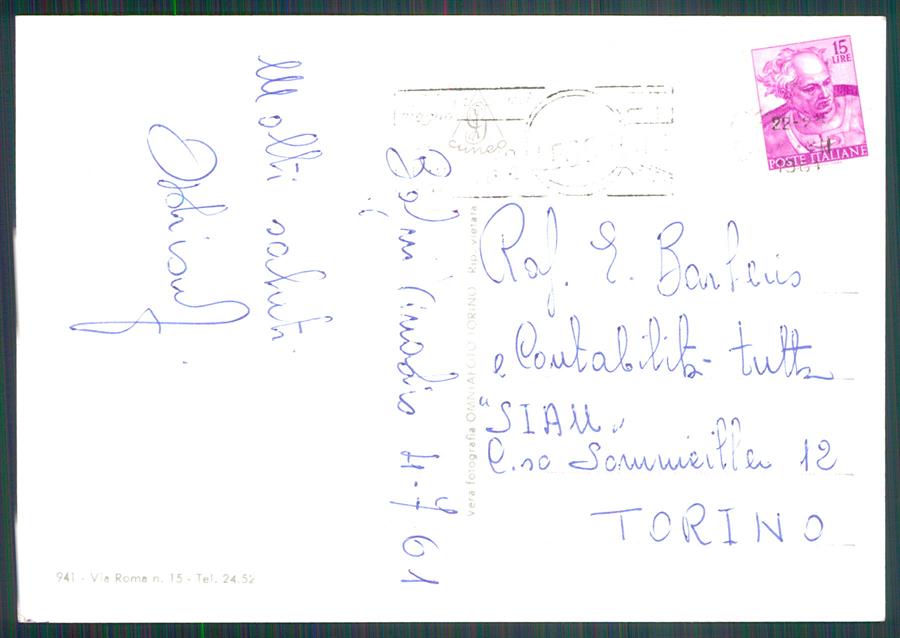 Molti saluti
Bagni Vinadio 4-7-61
Rag. E. Barberis
e Contabilità tutta
"SIAM"
C.so Sommeiller 12
TORINO
15
LIRE
POSTE ITALIANE
22-
1961
CUNEO
Vera fotografia OMNIAFOTO TORINO Rip. vietata
941 - Via Roma n. 15 - Tel. 24.52